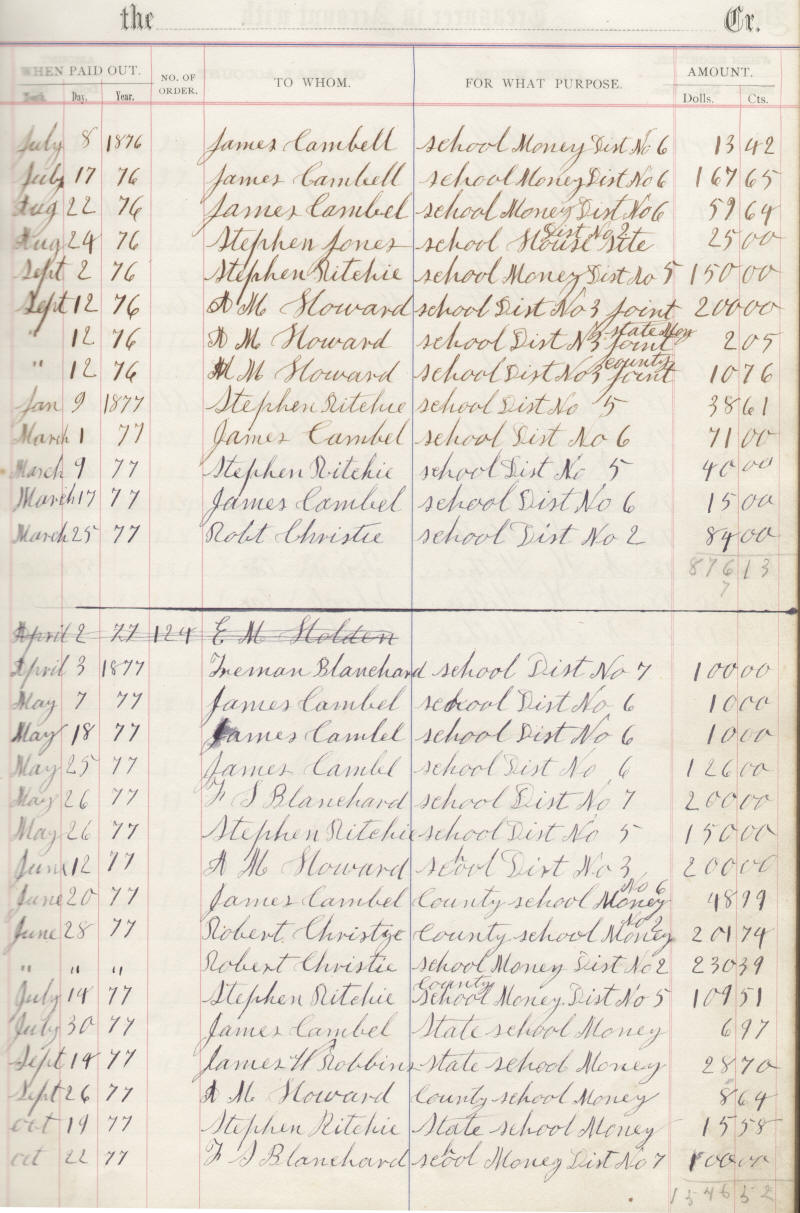 the Cr.
WHEN PAID OUT. NO. OF ORDER. TO WHOM. FOR WHAT PURPOSE. AMOUNT.
Month. Day. Year. Dolls. Cts.
July 8 1876 James Cambell school Money Dist No 6 13 42
July 17 76 James Cambell school Money Dist No 6 167 65
Aug 22 76 James Cambel school Money Dist No 6 59 64
Dist No 2
Aug 24 76 Stephen Jones school House site 25 00
Sept 2 76 Stephen Ritchie school Money Dist No 5 150 00
Sept 12 76 A M Howard school Dist No 3 joint 200 00
state Mon
" 12 76 A M Howard school Dist N 3 joint 2 05
county
" 12 76 A M Howard school Dist No 3 joint 10 76
Jan 9 1877 Stephen Ritchie school Dist No 5 38 61
March 1 77 James Cambel school Dist No 6 71 00
March 9 77 Stephen Ritchie school Dist No 5 40 00
March 17 77 James Cambel school Dist No 6 15 00
March 25 77 Robt Christie school Dist No 2 84 00
876 13
7
April 2 77 124 E M Holden
April 3 1877 Freman Blanchard school Dist No 7 100 00
May 7 77 James Cambel school Dist No 6 10 00
May 18 77 James Cambel school Dist No 6 10 00
May 25 77 James Cambel school Dist No 6 126 00
May 26 77 F S Blanchard school Dist No 7 200 00
May 26 77 Stephen Ritchie school Dist No 5 150 00
June 12 77 A M Howard school Dist No 3 200 00
No 6
June 20 77 James Cambel County school Money 48 99
No 2
June 28 77 Robert Christye County school Money 201 74
" " " Robert Christie school Money Dist No 2 230 39
County
July 14 77 Stephen Ritchie School Money Dist No 5 109 51
July 30 77 James Cambel State school Money 6 97
Sept 14 77 James H Robbins state school Money 28 70
Sept 26 77 A M Howard County school Money 8 64
oct 19 77 Stephen Ritchie State school Money 15 58
oct 22 77 F S Blanchard school Money Dist No 7 100 00
1546 52